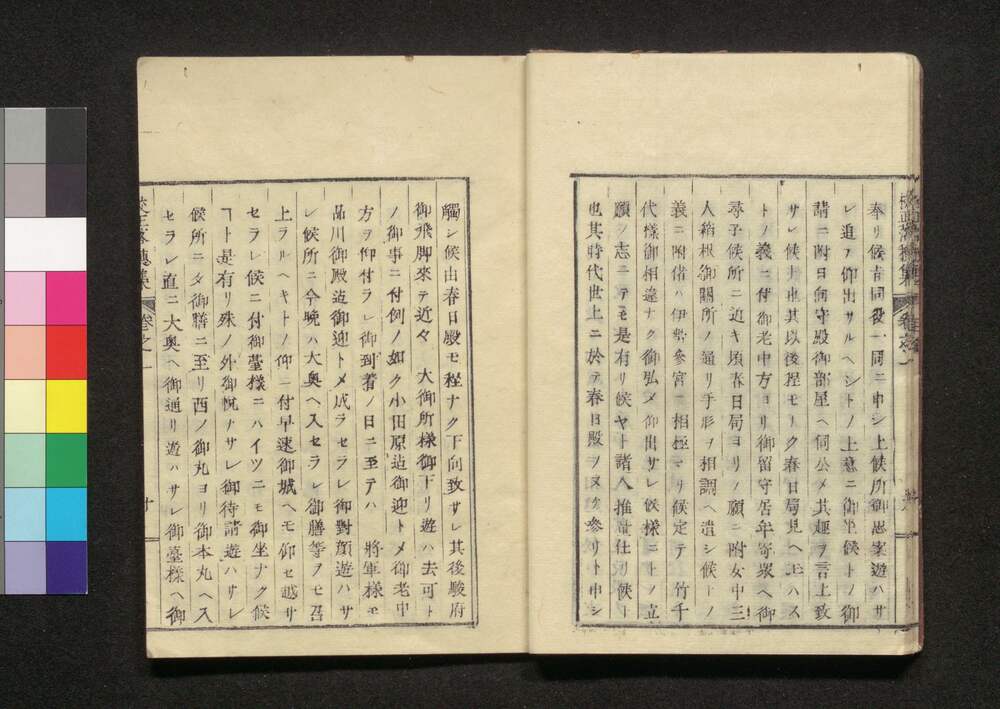 奉リ候吉同役一同ニ申シ上候所御思案遊ハサ
レ追テ仰出サルヘシトノ上意ニ御坐候トノ御
請ニ附日向守殿御部屋ヘ伺公メ其趣ヲ言上致
サレ候 其以後程モナク春日局見ヘ玉ハス
トノ義ニ付御老中方ヨリ御留守居年寄衆ヘ御
尋子候所ニ近キ頃春日局ヨリノ願ニ附女中三
人箱根御關所ノ通リ手形ヲ相調ヘ遣シ候トノ
義ニ附偖ハ伊勢參宮ニ相極マリ候定テ 竹千
代樣御相違ナク御弘メ御出サレ候樣ニトノ立
願ノ志ニテモ是有リ候ヤト諸人推量仕リ候
也其時代世上ニ於テ春日殿ノヌケ參リト申シ
觸シ候由春日殿モ程ナク下向致サレ其後駿府
御飛脚來テ近々 大御所樣御下リ遊ハ去可ト
ノ御事ニ付例ノ如ク小田原迠御迎トメ御老中
方ヲ仰付ラレ御到着ノ日ニ至テハ 將軍樣モ
品川御殿迠御迎トメ成ラセラレ御對顔遊ハサ
レ候所ニ今晩ハ大奥ヘ入セラレ御膳等ヲモ召
上ラルヘキトノ仰ニ付早速御城ヘモ仰セ越サ
セラレ候ニ付御臺樣ニハイツニモ御坐ナク候
ヿト是有リ殊ノ外御悦ナサレ御待請遊ハサレ
候所ニタ御膳ニ至リ西ノ御丸ヨリ御本丸ヘ入
セラレ直ニ大奥ヘ御通リ遊ハサレ御臺樣ヘ御
卷之一
十